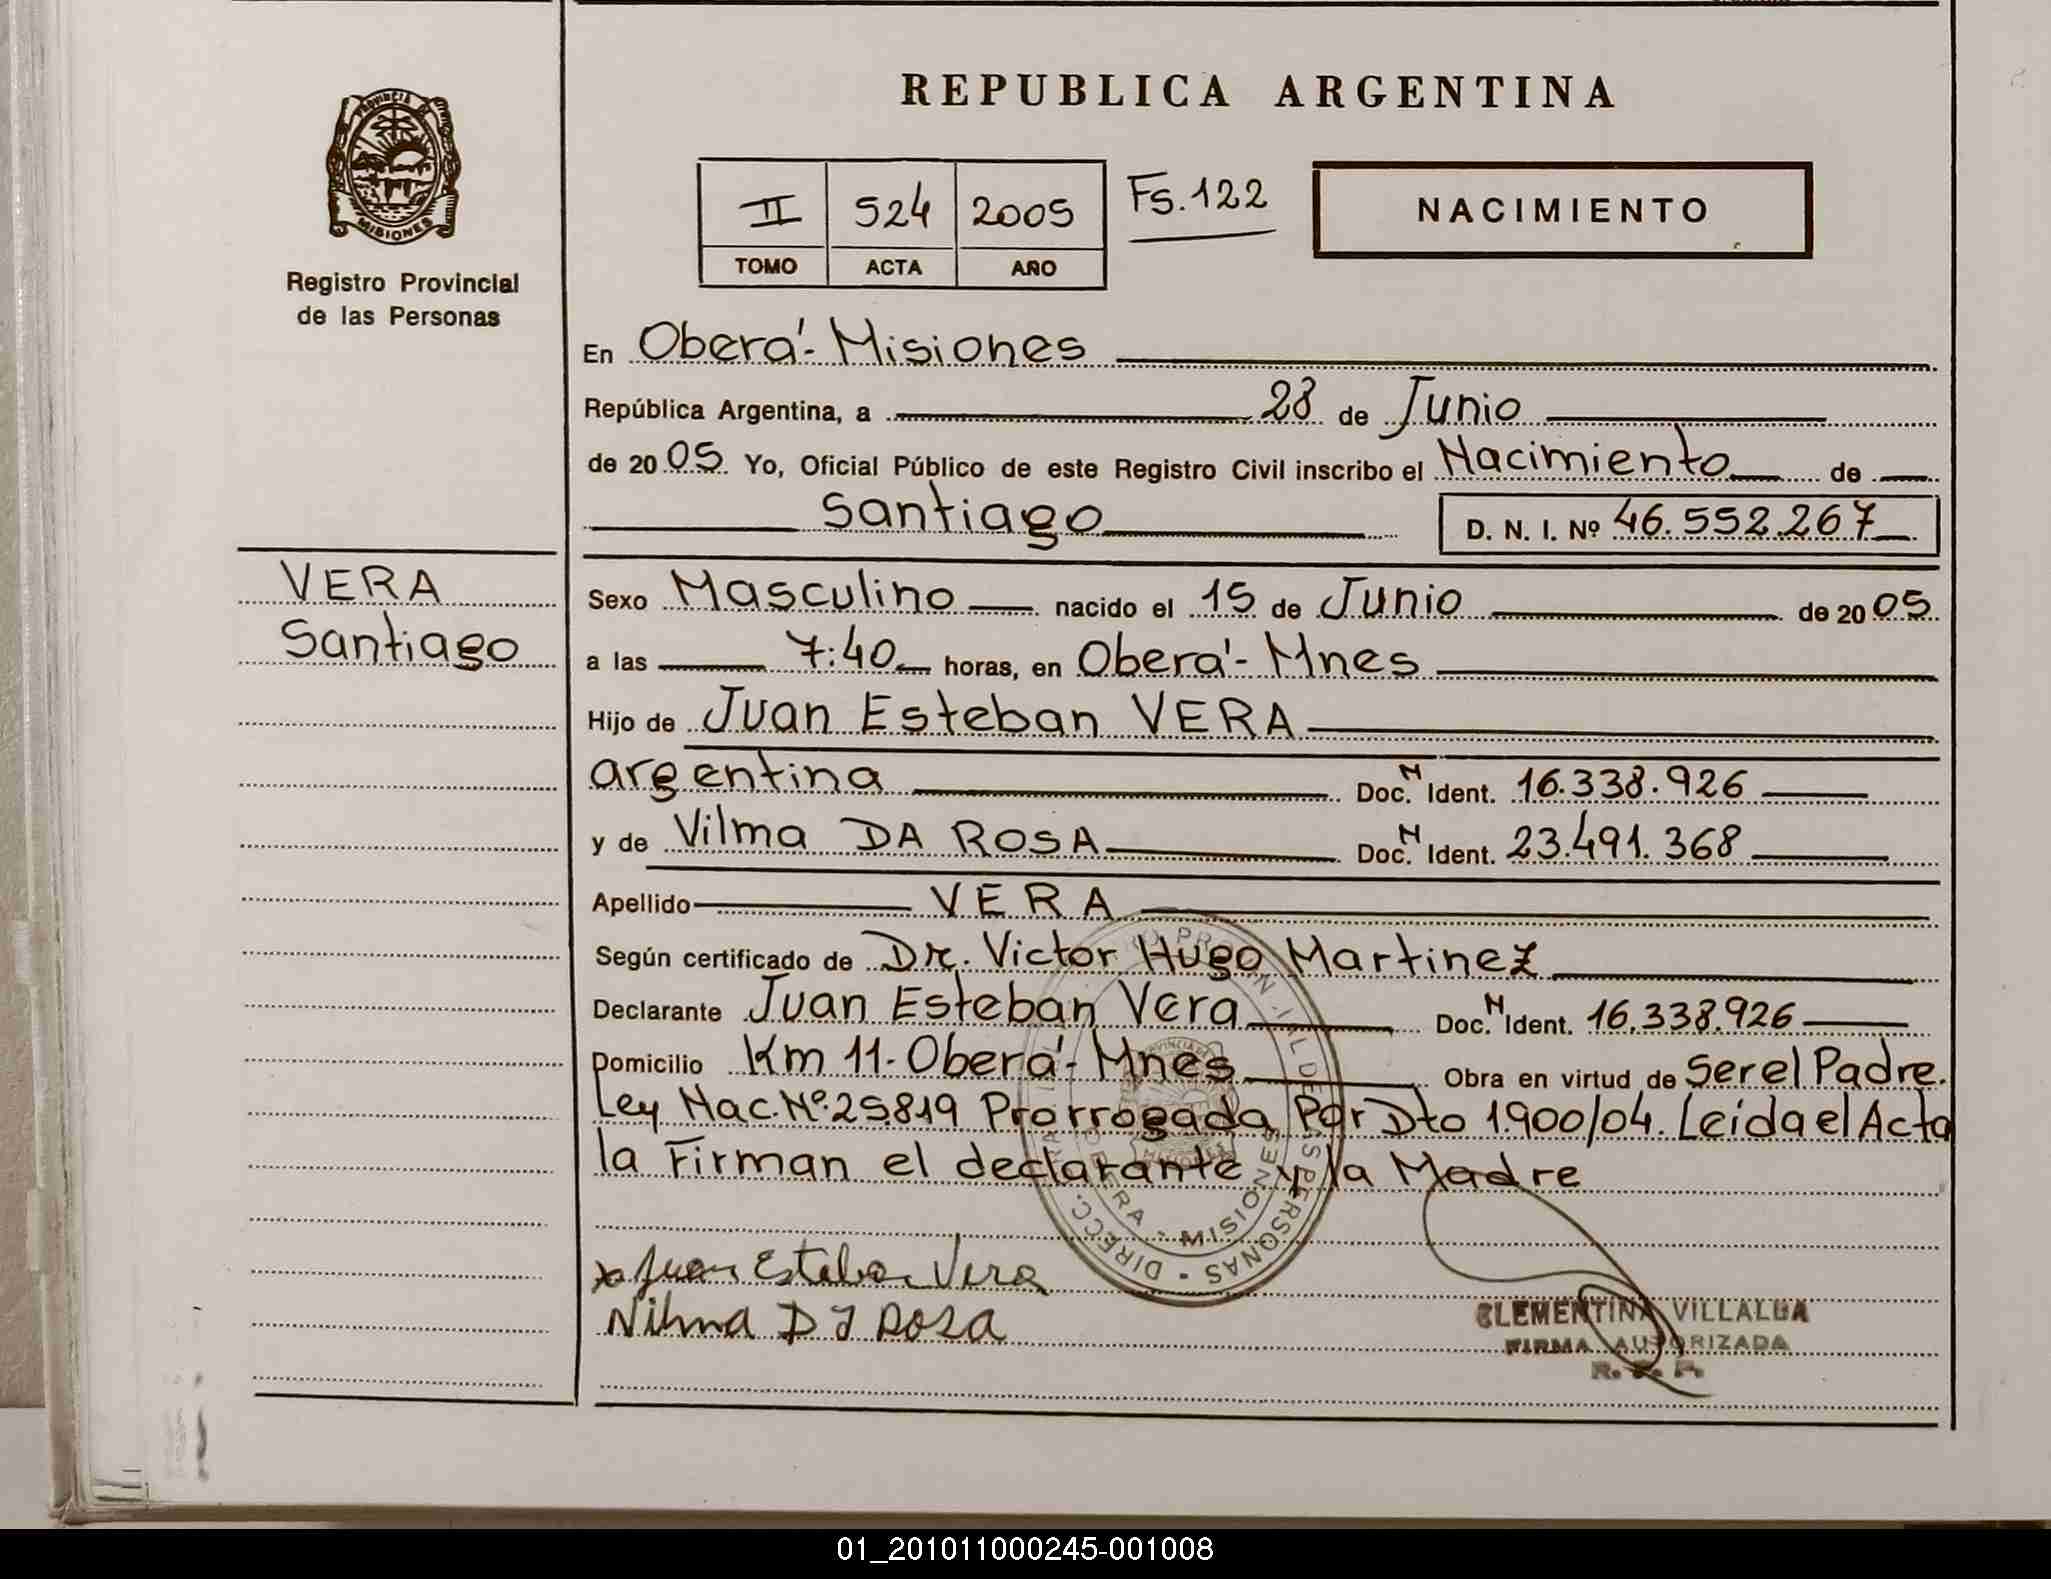 REPUBLICA ARGENTINA
PROVINCIA DE MISIONES
Registro Provincial
de las Personas
II 524 2005 Fs.122
TOMO ACTA AÑO
NACIMIENTO
En Oberá-Misiones
República Argentina, a 28 de Junio
de 2005 Yo, Oficial Público de este Registro Civil inscribo el Nacimiento de
Santiago D. N. I. Nº 46.552.267
VERA
Santiago
Sexo Masculino nacido el 15 de Junio de 2005
a las 7:40 horas, en Oberá-Mnes
Hijo de Juan Esteban VERA
argentina Doc. N Ident. 16.338.926
y de Vilma DA ROSA Doc. N Ident. 23.491.368
Apellido VERA
Según certificado de Dr. Victor Hugo Martinez
Declarante Juan Esteban Vera Doc. N Ident. 16.338.926
Domicilio Km 11-Oberá-Mnes Obra en virtud de Ser el Padre.
Ley Nac.Nº.25.819 Prorrogada Por Dto 1.900/04. Leida el Acta
la Firman el declarante y la Madre
x Juan Esteban Vera
Vilma DA ROSA
CLEMENTINA VILLALBA
FIRMA AUTORIZADA
01_201011000245-001008